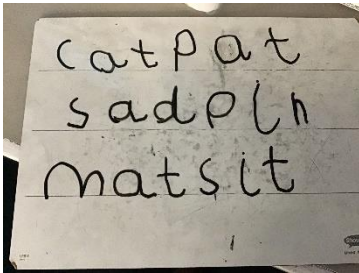 cat pat
sad pin
mat sit